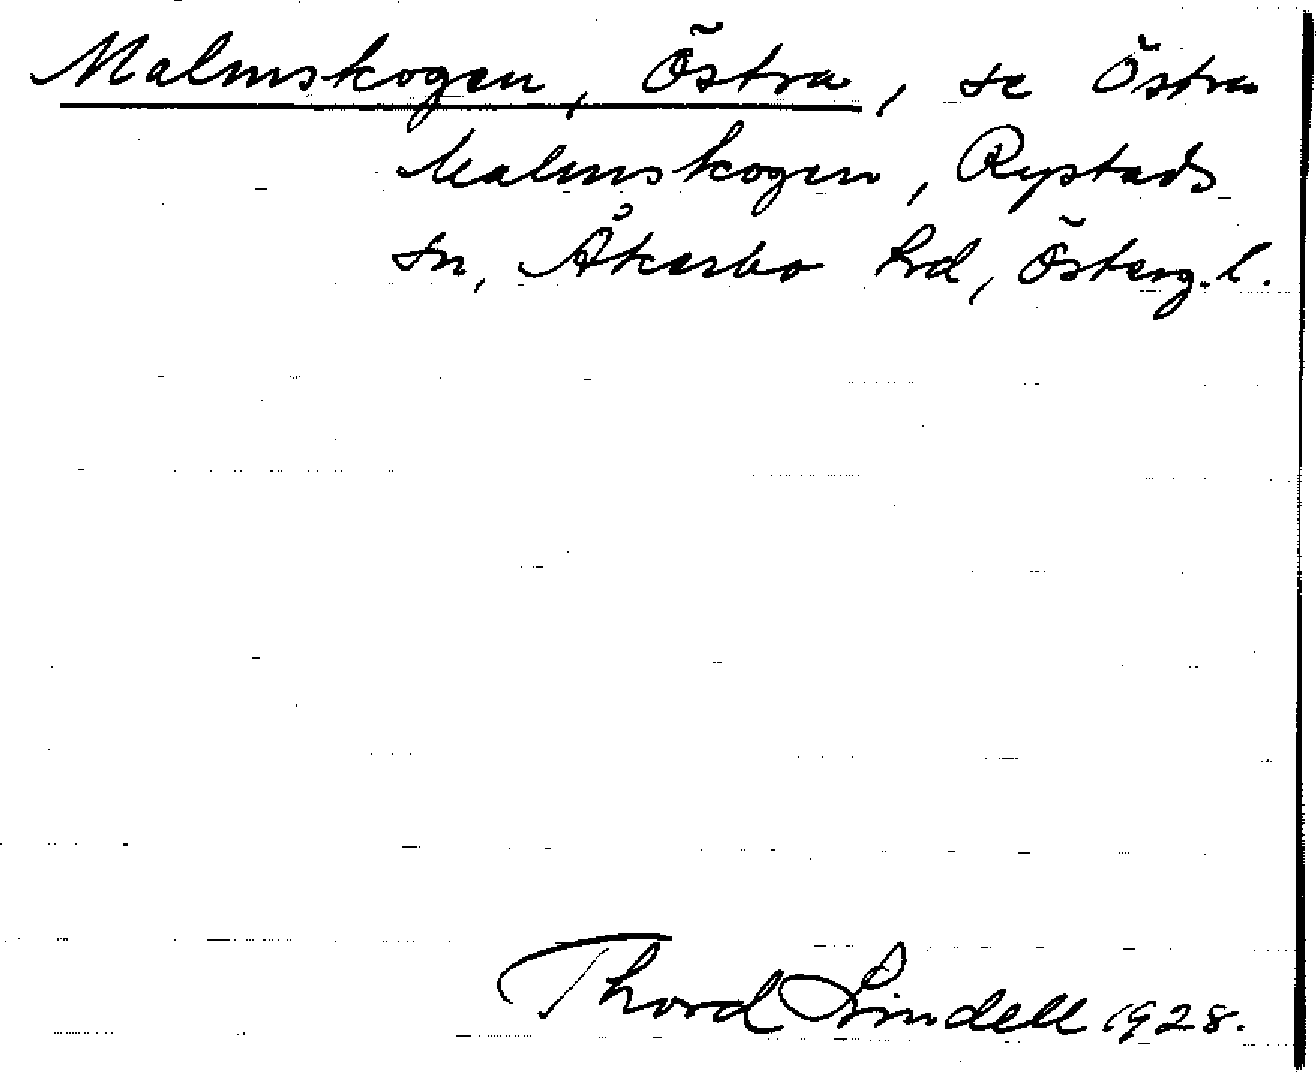 Malmskogen, Östra, se Östra
Malmskogen, Rystads
sn, Åkerbo hd, Österg. l.
Thord Lindell 1928.